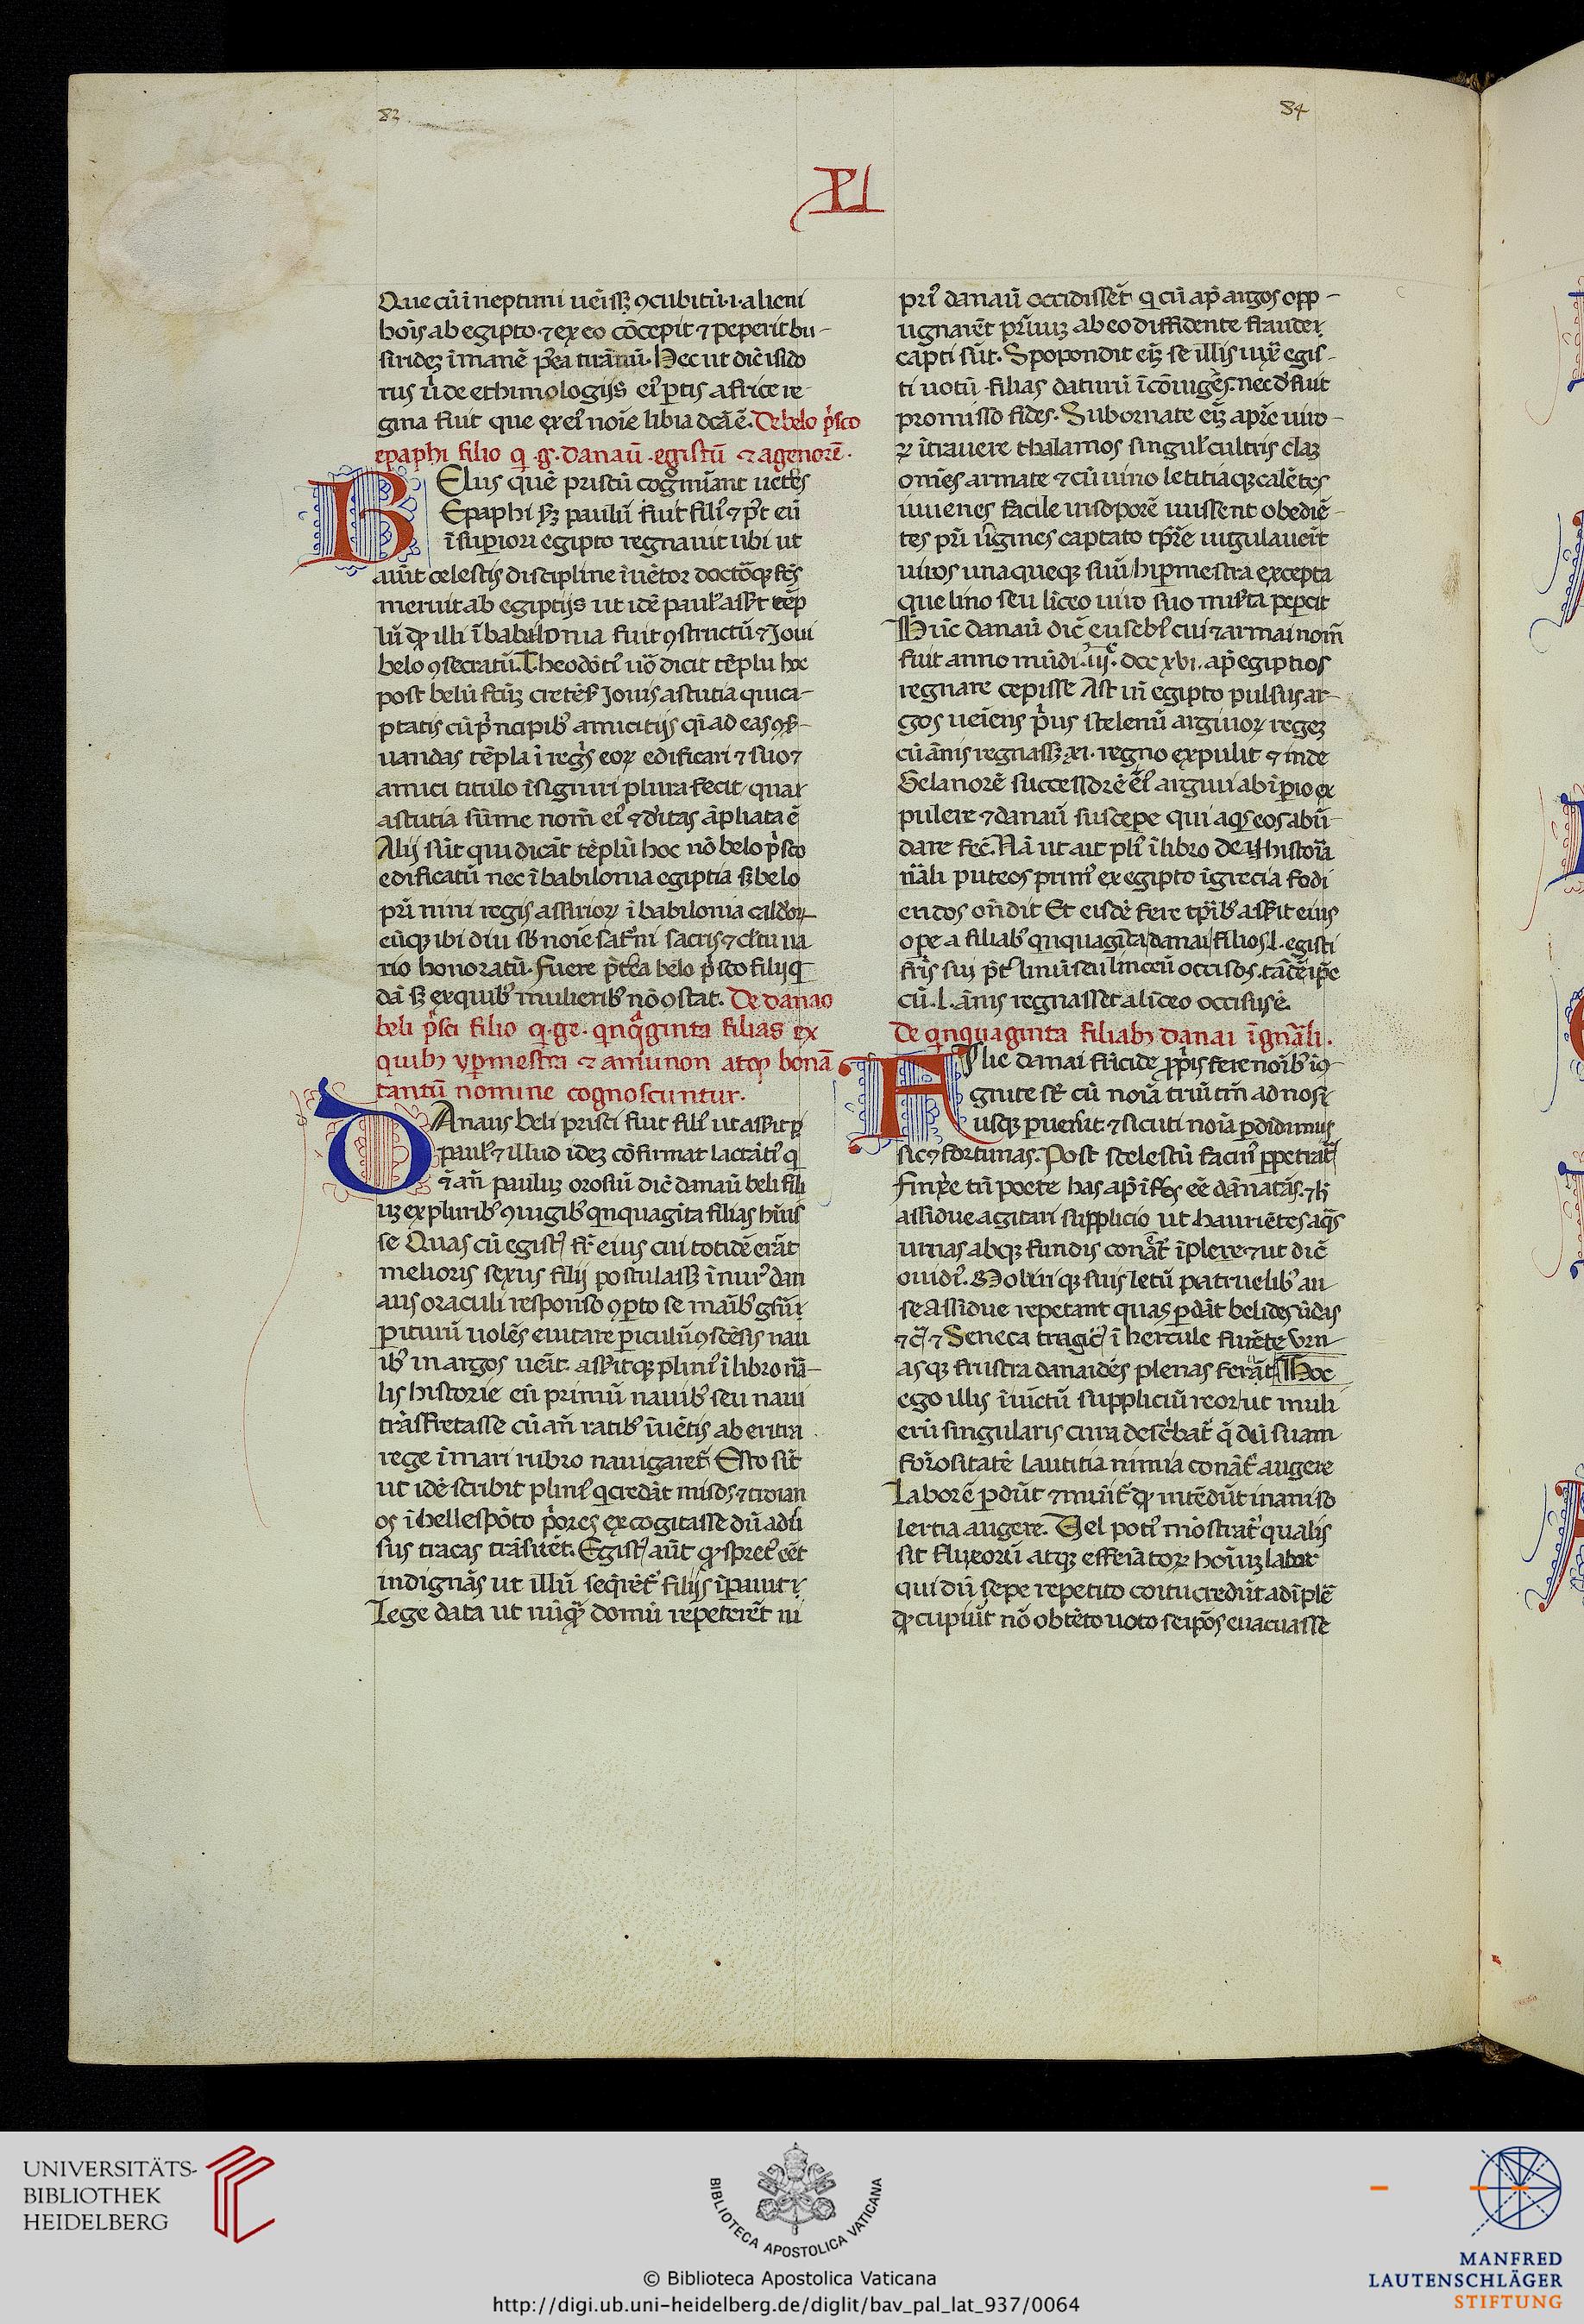 83
84
PL
Que cũ ĩ neptuni uẽisꝫ ꝯcubitũ · i · alieni
hoĩs ab egipto ⁊ ex eo cõcepit ⁊ peperit bu-
siridez ĩmanẽ p̃ea tirãnũ. Hec ut dic̃ isido
rus ũ de ethimologijs ei᷒ ꝑtis africe re-
gina fuit que ex ei᷒ noĩe libia dcã ẽ. De belo p̃sco
epaphi filio q̃ · g · danaũ · egistũ ⁊ agenorẽ ·
BElus quẽ priscũ cognoĩant ueteres
Epaphi sꝫ paulũ fuit fili᷒ ⁊ p̃t eũ
ĩ superiori egipto regnauit ubi ut
aiũt celestis discipline ĩuẽtor doctõqꝫ fc̃s
meruit ab egiptijs ut idẽ paul᷒ asserit tẽp
lũ qđ illi ĩ babilonia fuit ꝯstructũ ⁊ Joui
belo ꝯsecratũ. Theodõti᷒ uõ dicit tẽplũ hoc
post belũ fcũꝫ cretẽs᷒ Jouis astutia qui ca-
ptatis cũ p̃ncipibꝫ amicitijs qñ ad eas ꝯẜ-
uandas tẽpla ĩ reg̃s eoꝝ edificari ⁊ suo ⁊
amici titulo ĩsigniri plura fecit quaꝝ
astutia sũme nom̃ ei᷒ ⁊ đitas ãpliata ẽ
Alij sũt qui dicãt tẽplũ hoc nõ belo p̃sco
edificatũ nec ĩ babilonia egiptia sꝫ belo
pr̃i nini regis assirioꝝ ĩ babilonia caldeoꝝ
eũqꝫ ibi diu sb̃ noĩe sat᷒ni sacris ⁊ cultu ua
rio honoratũ. Fuere p̃tea belo p̃sco filij q̃
dã sꝫ ex quibꝫ mulieribꝫ nõ ꝯstat. De danao
beli p̃sci filio q̃ · ge · qnq̃ginta filias ex
quibꝫ ypermestra ⁊ amiunon atqꝫ bonã
tantũ nomine cognoscuntur.
DAnaus beli prisci fuit fili᷒ ut asserit
paul᷒ ⁊ illud idez cõfirmat lactãti᷒ q̃
⁊ ãñ pauluꝫ orosiũ dic̃ danaũ beli fili
uꝫ ex pluribꝫ ꝯiugibꝫ qnquagĩta filias habuis
se Quas cũ egist᷒ fr̃ eius cui totidẽ erãt
melioris sexus filij postulasꝫ ĩ nur᷒ dan
aus oraculi responso ꝯꝑto se manibꝫ gñi
ꝑiturũ uolẽs euitare ꝑiculũ ꝯscẽsis nau
ibꝫ in argos ueĩt. asseritqꝫ plini᷒ ĩ libro nãa-
lis historie eũ primũ nauibꝫ seu naui
trãsfretasse cũ ãñ ratibꝫ ĩuẽtis ab eritra
rege ĩ mari rubro nauigaret᷒ Esto sĩt
ut idẽ scribit plini᷒ q̃ credãt misos ⁊ troian
os ĩ hellespõto p̃ores excogitasse dũ adũ
sus tracas trãsirẽt. Egist᷒ aũt qđ spret᷒ eẽt
indignãs ut illũ seq̃rẽt᷒ filijs ĩperauit
Lege data ut nũq̃ domũ repeterẽt ni
pri᷒ danaũ occidissẽt q̃ cũ ap̃ argos opp-
ugnarẽt pr̃uuꝫ ab eo diffidente fraude
capti sũt. Spopondit ei᷒ se illis iux̃ egis-
ti uotũ filias daturũ ĩ cõiuges. nec đfuit
promisso fides. Subornate ei᷒ a pr̃e uiro-
ꝝ ĩtrauere thalamos singul᷒ cultris claꝫ
om̃es armate ⁊ cũ uino letitiaqꝫ calẽtes
iuuenes facile in soporẽ iuissent obediẽ-
tes pr̃i uĩgines captato tp̃re iugulauerũt
uiros unaqueqꝫ suũ hipermestra excepta
que lino seu linceo uiro suo miserta pepercit
Hũc danaũ dic̃ eusebi᷒ cui ⁊ armai nom̃
fuit anno mũdi · iij · dcc xvi · ap̃ egiptios
regnare cepisse Ast ubi egipto pulsus ar-
gos ueĩens p̃us stelenũ argiuoꝝ regeꝫ
cũ ãnis regnasꝫ xi · regno expulit ⁊ inde
Gelanorẽ successorẽ ei᷒ argiui ab ĩperio ex
pulere ⁊ danaũ suscepe qui aq̃s eos abũ-
dare fec̃. Nã ut ait pli᷒ ĩ libro de histoĩa
nãali puteos prim᷒ ex egipto ĩ grecia fodi
endos oñdit Et eisdẽ fere tp̃ribꝫ asserit eius
ope a filiabꝫ qnquagĩta danai filios · l · egisti
fr̃is sui p̃t᷒ linũ seu linceũ occisos. tãdẽ ip̃e
cũ · l · ãnis regnasset a lĩceo occisus ẽ.
De qinquaginta filiabꝫ danai ĩ gñali ·
FIlie danai fr̃icide p̃prijs fere noĩbꝫ ĩco
gnite sũt cũ noĩa triũ tm̃ ad nos
usqꝫ ꝑuenerit ⁊ sicuti noĩa ꝑdidimus
sic ⁊ fortunas. Post scelestũ facin᷒ ꝑpetrat᷒
finxere tñ poete has ap̃ ĩferos eẽ dãnatas. ⁊ h᷒
assidue agitari supplicio ut hauriẽtes aq̃s
urnas absqꝫ fundis conẽt᷒ ĩplere ⁊ ut dic̃
ouidi᷒. Moliriqꝫ suis letũ patruelibꝫ au
se Assidue repetant quas ꝑdãt belides ũdas
⁊c̃ ⁊ Seneca tragic᷒ ĩ hercule furẽte Vrn
asqꝫ frustra danaides plenas ferãt Hoc
ego illis ĩuictũ suppliciũ reor ut muli
erũ singularis cura descr̃bat᷒ q̃ dũ suam
formositatẽ lautitia nimia conãt᷒ augere
Laborẽ ꝑdũt ⁊ mĩuit᷒ qđ intẽdũt inani so
lertia augere. Vel poti᷒ mõstrat᷒ qualis
sit fluxorũ atqꝫ effeĩatoꝝ hoĩuꝫ labor
qui dũ sepe repetito coitu credũt adĩplẽ
qđ cupiũt nõ obtẽto uoto seip̃os euacuasse
UNIVERSITÄTS-
BIBLIOTHEK
HEIDELBERG
BIBLIOTECA APOSTOLICA VATICANA
© Biblioteca Apostolica Vaticana
http://digi.ub.uni-heidelberg.de/diglit/bav_pal_lat_937/0064
MANFRED
LAUTENSCHLÄGER
STIFTUNG